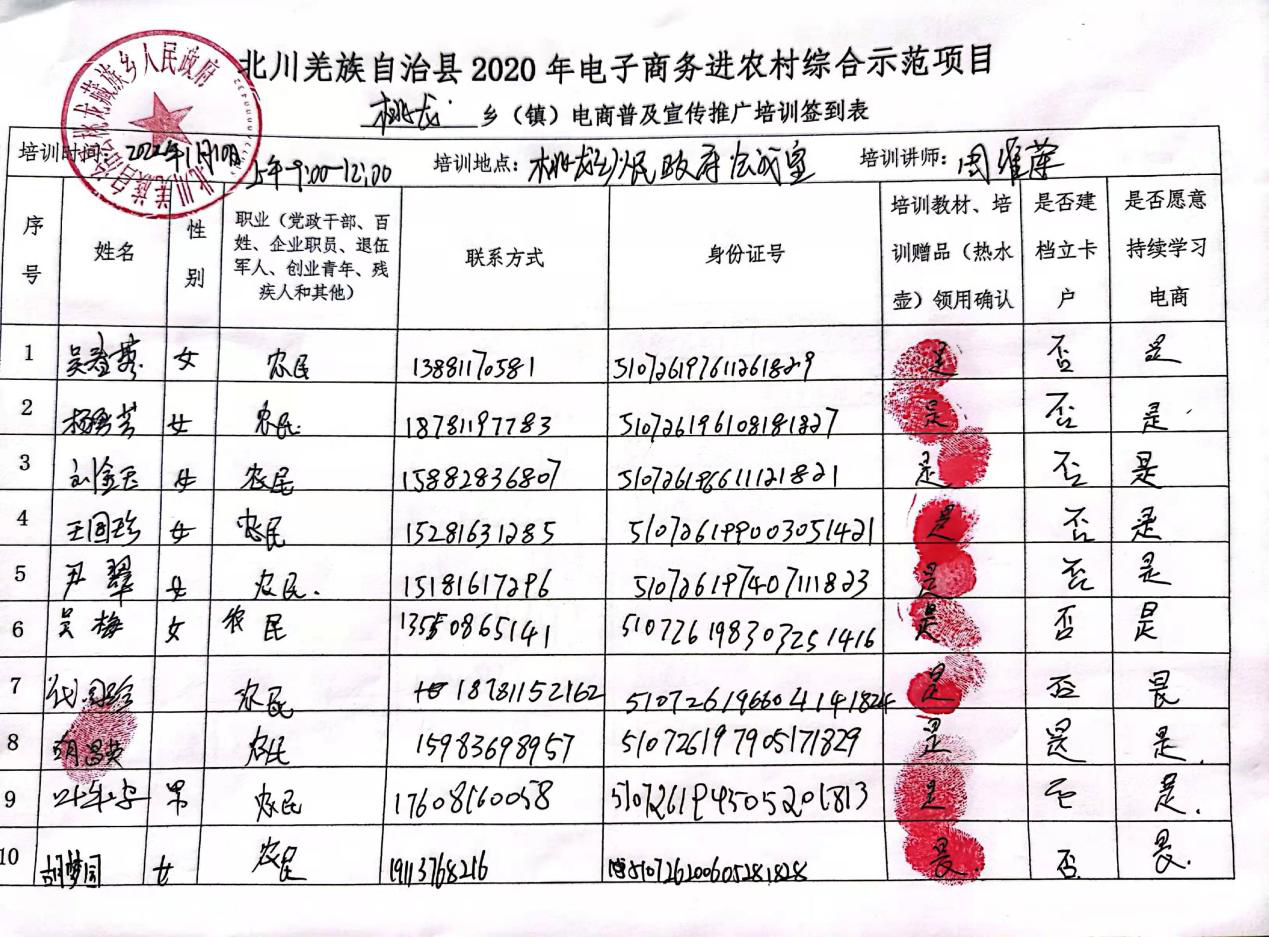 北川羌族自治县2020年电子商务进农村综合示范项目
桃龙 乡（镇）电商普及宣传推广培训签到表
培训时间：2022年1月10日 上午9:00-12:00 培训地点：桃龙乡人民政府会议室 培训讲师：周维萍
序号 姓名 性别 职业（党政干部、百姓、企业职员、退伍军人、创业青年、残疾人和其他） 联系方式 身份证号 培训教材、培训赠品（热水壶）领用确认 是否建档立卡户 是否愿意持续学习电商
1 女 农民 13881170581 510726197611261829 是 否 是
2 杨秀芳 女 农民 18781197783 510726196108181827 是 否 是
3 女 农民 15882836807 510726196611121821 是 否 是
4 王国珍 女 农民 15281631285 510726199003051421 是 否 是
5 尹翠 女 农民. 15181617296 510726197407111823 是 否 是
6 吴梅 女 农民 13550865141 510726198303251416 是 否 是
7 农民 18781152162 510726196604141824 是 否 是
8 胡昌英 农民 15983698957 510726197905171829 是 是 是.
9 男 农民 17608160058 是 否 是.
10 胡梦园 女 农民 19113768216 510726200605281828 是 否 是.